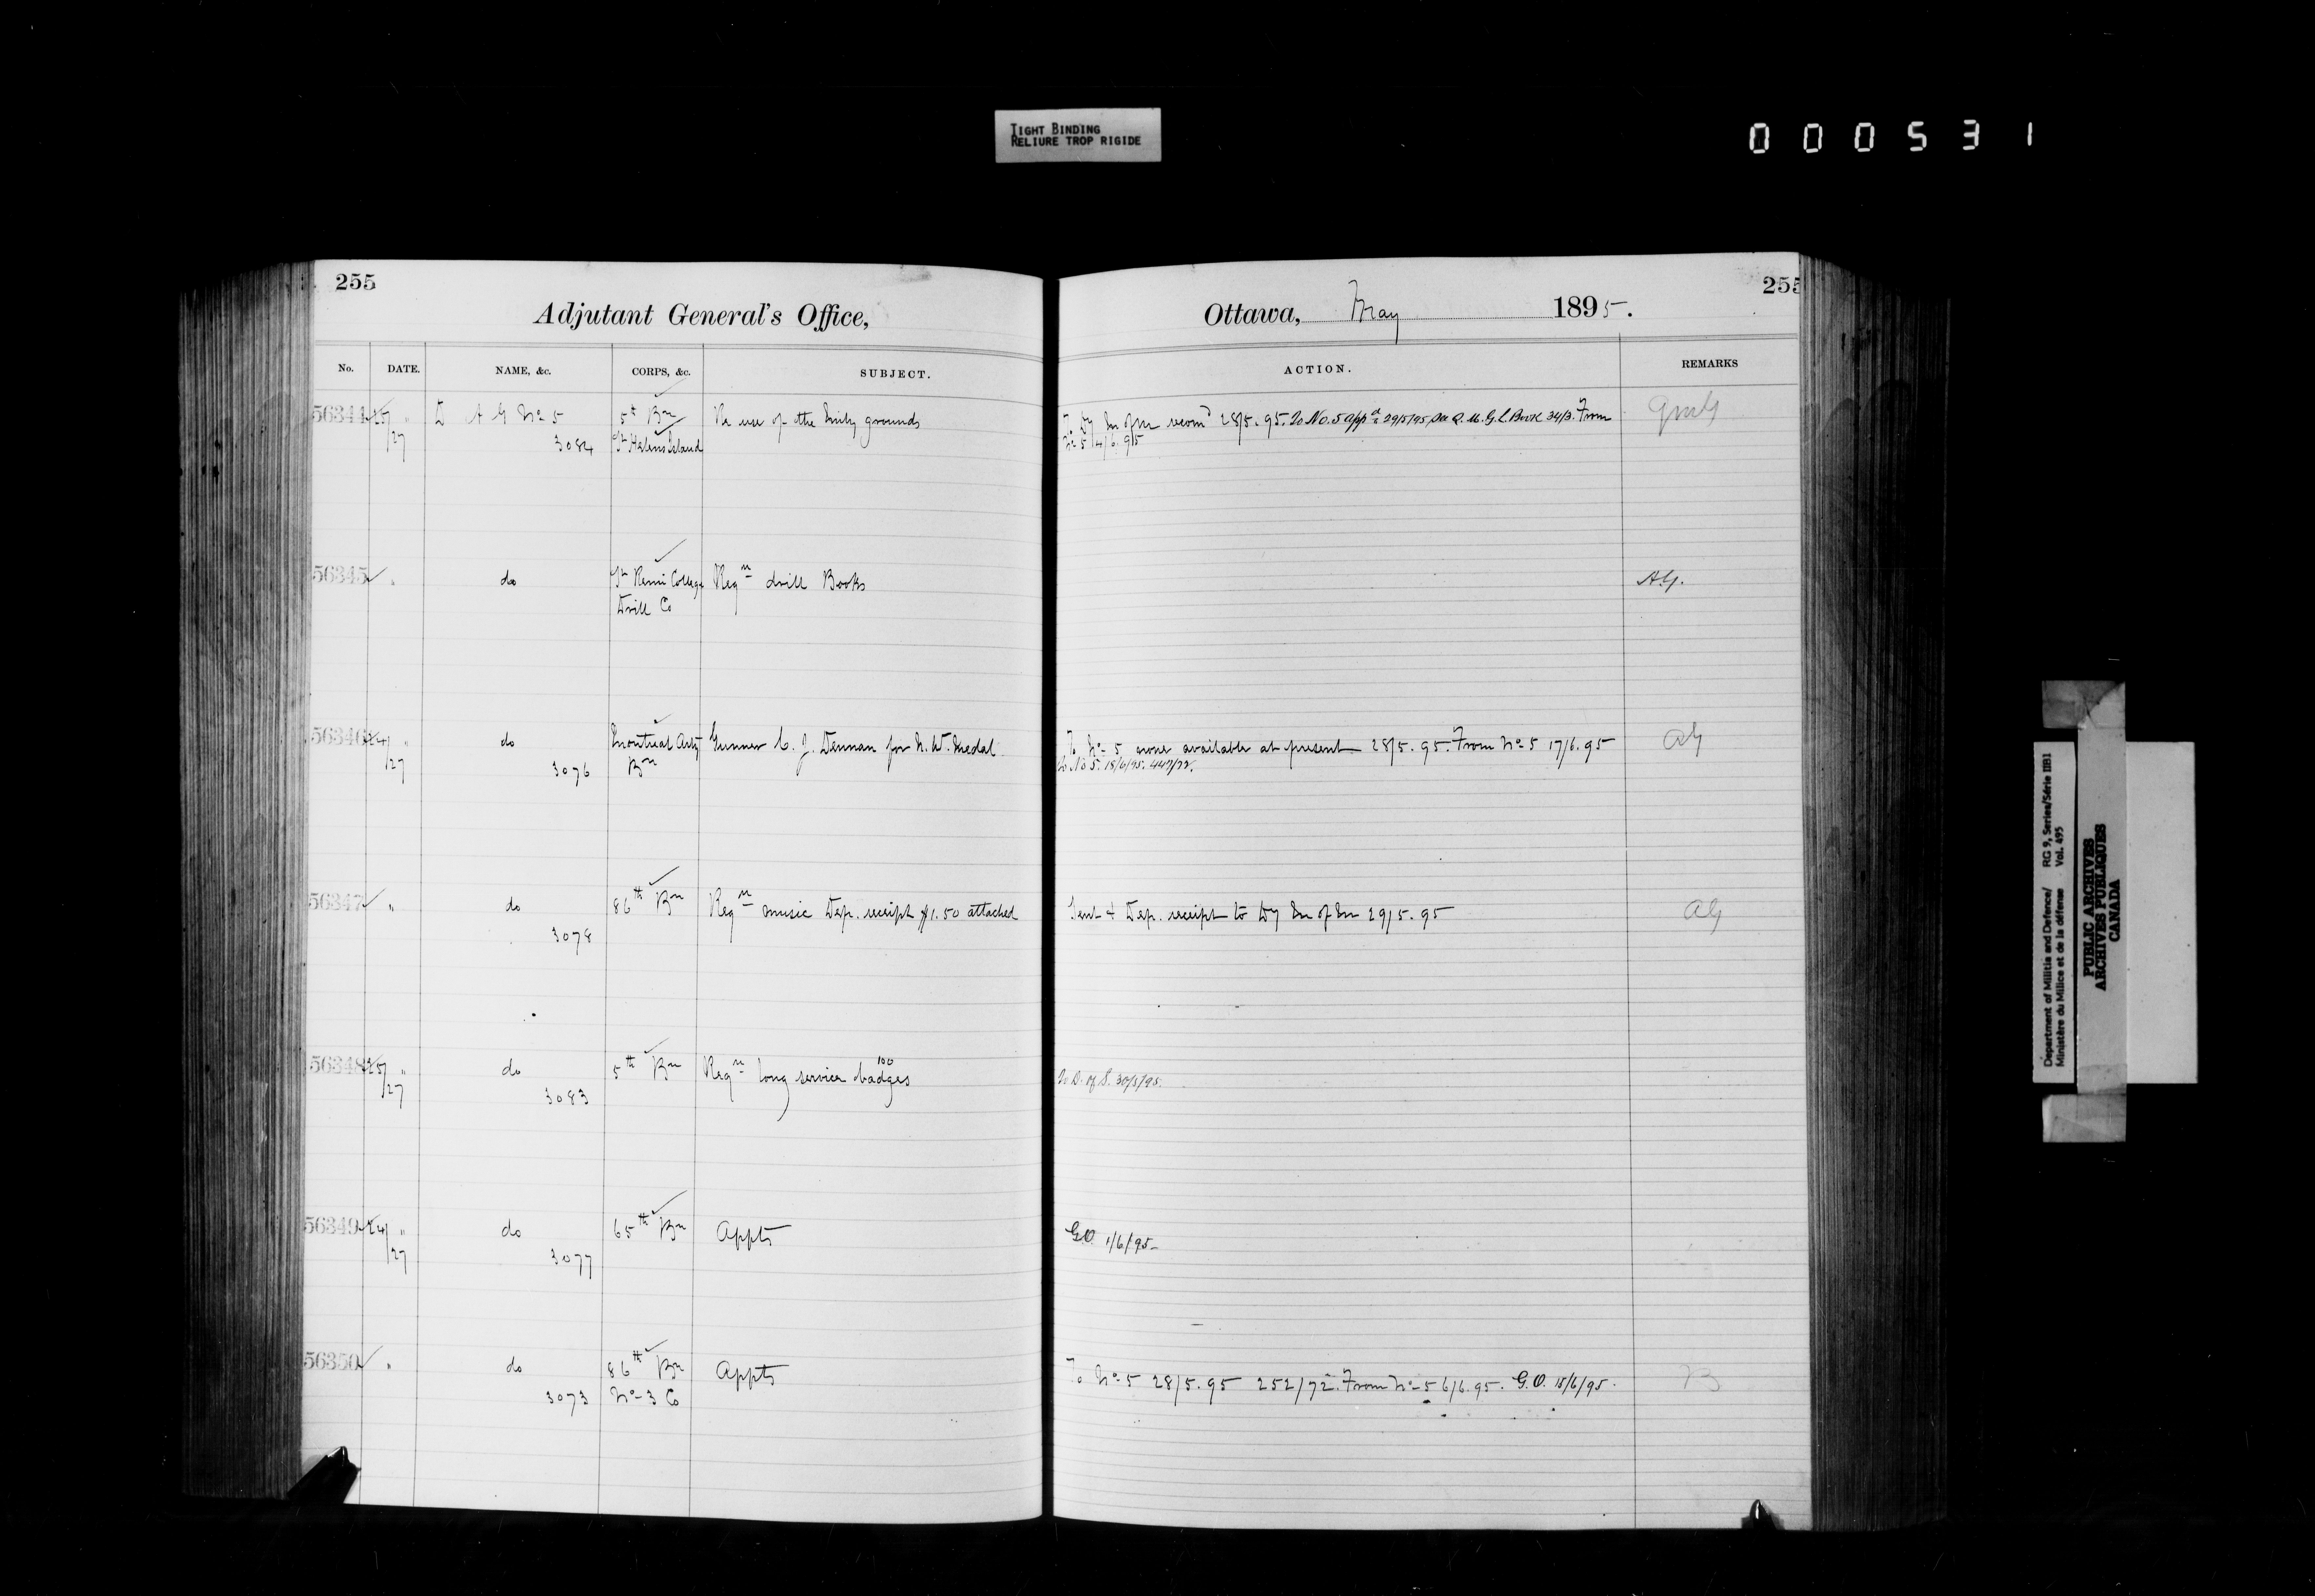 TIGHT BINDING
RELIURE TROP RIGIDE
000531
255
Adjutant General's Office,
No. DATE. NAME, &c. CORPS, &c. SUBJECT.
56344 25/27 " D A G No 5 5th Bn Re use of the grounds
3084 St Helens Island
56345 " do St Remi College Reqn drill Books
Drill Co
56346 24/27 " do Montreal Arty Gunner C. J. Dennan for N. W. Medal
3076 Bn
56347 " do 86th Bn Reqn music Dep. receipt $1.50 attached
3078
56348 25/27 " do 5th Bn Reqn long service 100 badges
3083
56349 24/27 " do 65th Bn Appts
3077
56350 " do 86th Bn Appts
3073 No 3 Co
255
Ottawa, May 1895.
ACTION. REMARKS
To Dy M of M recomd 28/5.95. To No. 5 appd 29/5/95, See Q.M.G.L. Book 34/3. From QMG
No 5 4/6.95
AG.
To No 5 none available at present 28/5.95. From No 5 17/6.95 AG
To No 5. 18/6/95. 447/72.
Sent & Dep. receipt to Dy M of M 29/5.95 AG
To D. of S. 30/5/95.
GO 1/6/95
To No 5 28/5.95 252/72. From No 5 6/6.95. G.O. 15/6/95.
Department of Militia and Defence/ RG 9, Series/Série IIB1
Ministère du Milice et de la défense Vol. 495
PUBLIC ARCHIVES
ARCHIVES PUBLIQUES
CANADA